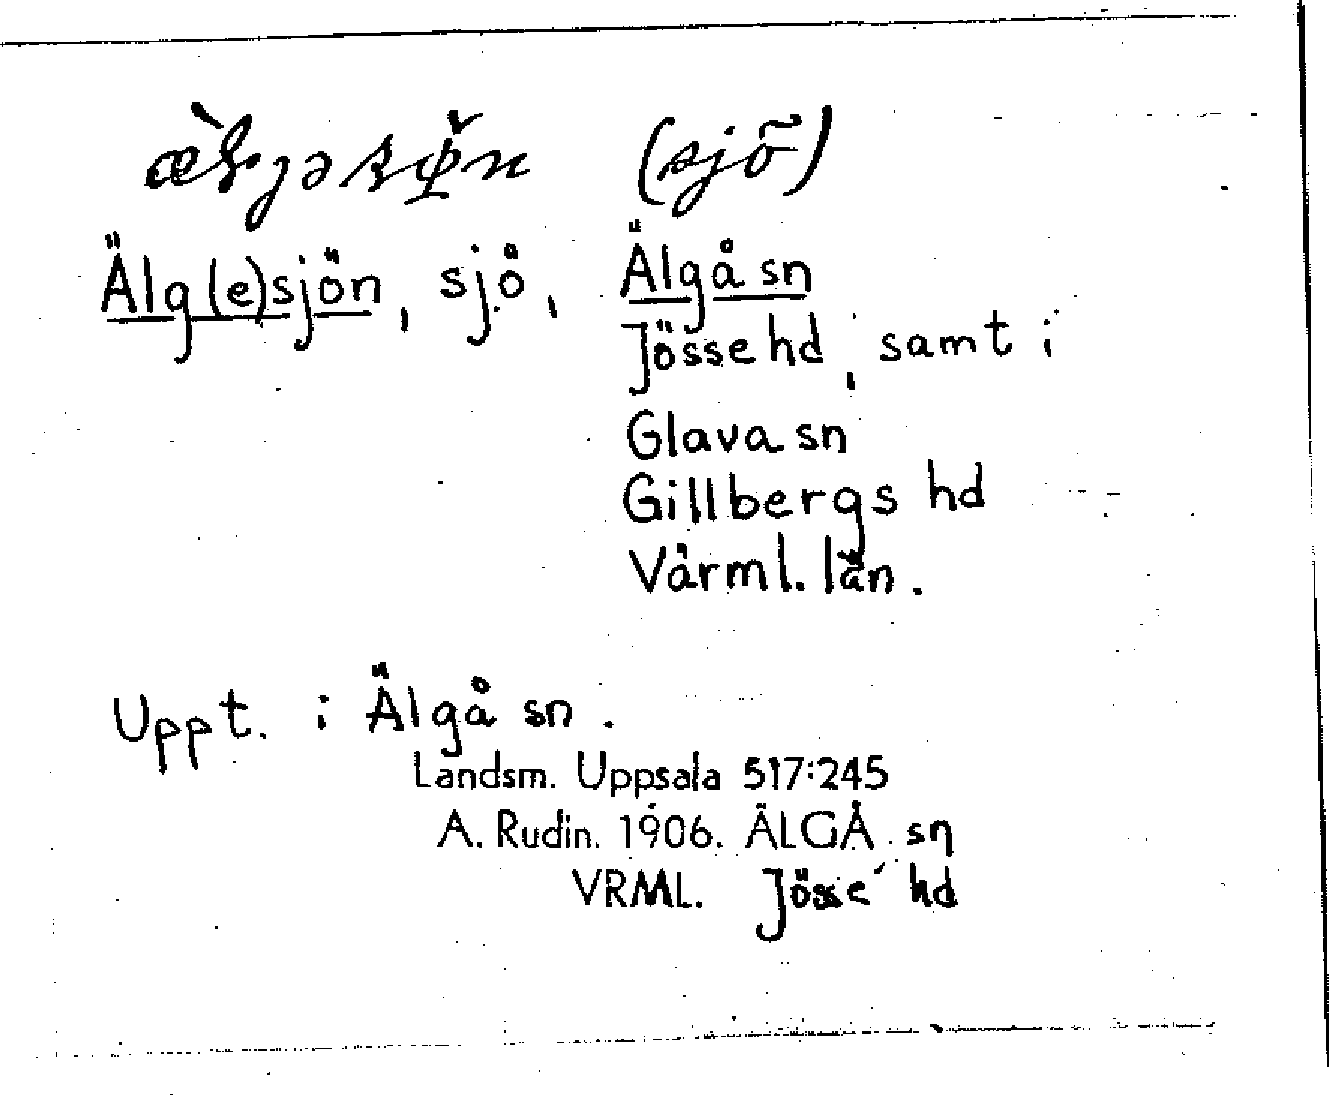 (sjö)
Älg(e)sjön, sjö, Älgå sn
Jösse hd, samt i
Glava sn
Gillbergs hd
Värml. län.
Uppt. i Älgå sn.
Landsm. Uppsala 517:245
A. Rudin. 1906. ÄLGÅ sn
VRML. Jösse hd